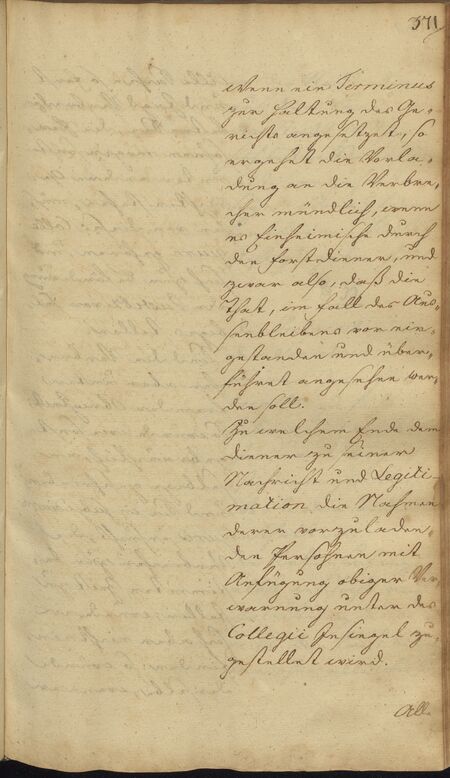 371
Wenn ein Terminus
zur Haltung des Ge-
richts angesetzet, so
ergehet die Vorla-
dung an die Verbre-
cher mündlich, wenn
es Einheimische durch
den Forstdiener, und
zwar also, daß die
That, im Fall des Aus-
senbleibens vor ein-
gestanden und über-
führet angesehen wer-
den soll.
Zu welchem Ende dem
Diener zu seiner
Nachricht und Legiti-
mation die Nahmen
derer vorzuladen-
den Persohnen mit
Anfügung obiger Ver
warnung unter des
Collegii Insiegel zu-
gestellet wird.
All